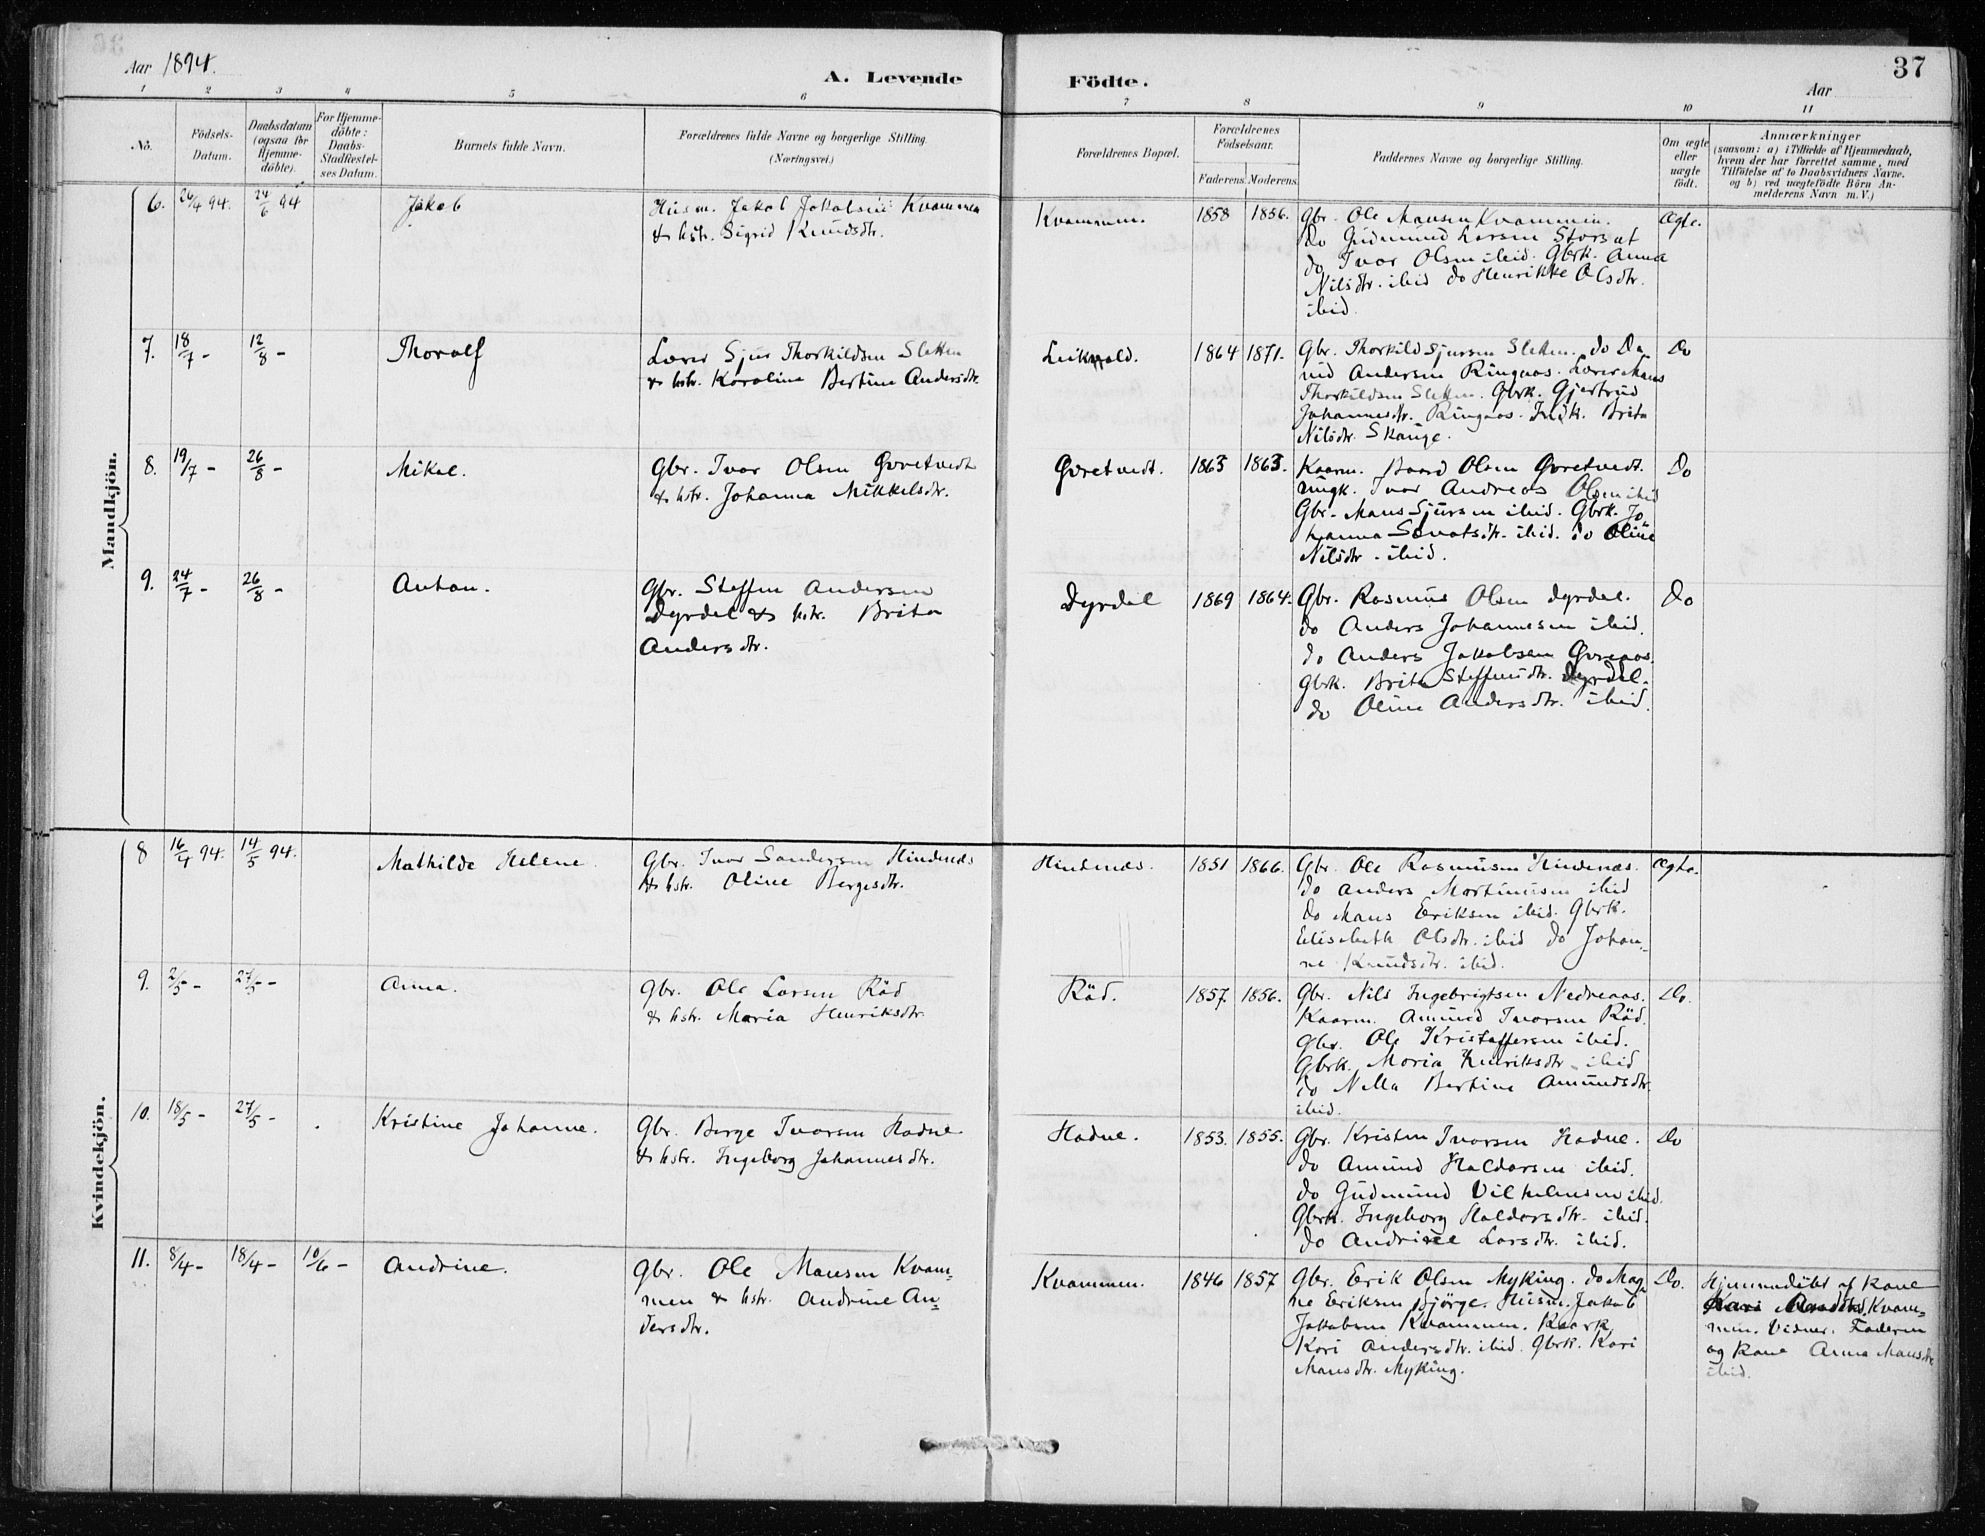 Aar 1894.
A. Levende Födte.
37
Aar
1 2 3 4 5 6 7 8 9 10 11
No.
Födsels-
Datum.
Daabsdatum
(ogsaa for
Hjemme-
döbte).
For Hjemme-
döbte:
Daabs-
Stadfæstel-
ses Datum.
Barnets fulde Navn.
Forældrenes fulde Navne og borgerlige Stilling
(Næringsvei.)
Forældrenes Bopæl.
Forældrenes
Födselsaar.
Faderens Moderens
Faddernes Navne og borgerlige Stilling.
Om ægte
eller
uægte
født.
Anmærkninger
(saasom: a) i Tilfælde af Hjemmedaab,
hvem der har forrettet samme, med
Tilföielse af to Daabsvidners Navne.
og b) ved uægtefödte Börn An-
melderens Navn m.V.)
Mandkjön.
6. 26/4 94. 24/6 94
Jakob
Husm. Jakob Jakobsen Kvammen
& hstr. Sigrid Knudsdtr.
Kvammen.
1858 1856.
Gbr. Ole Mansen Kvammen.
do Gudmund Larsen Storset
do Ivar Olsen ibid. Gbrk. Anna
Nilsdtr. ibid do Henrikke Olsdtr.
ibid.
Ægte.
7. 18/7 - 12/8 -
Thoralf
Lærer Sjur Thorkildsen Sletten
& hstr. Karoline Bertine Andersdtr.
Leiknvold.
1864 1871.
Gbr. Thorkild Sjursen Sletten. do Da-
vid Andersen Ringaas. Lærer Mans
Thorkildsen Sletten. Gbrk. Gjertrud
Johannesdtr. Ringaas. Indk. Brita
Nilsdtr. Skauge.
Do
8. 19/7 - 26/8 -
Mikal.
Gbr. Ivar Olsen Gvretvedt
& hstr. Johanna Mikkelsdtr.
Gvretvedt.
1863 1863.
Kaarm. Baard Olsen Gvretvedt.
Ungk. Ivar Andreas Olsen ibid
Gbr. Mans Sjursen ibid. Gbrk. Jo-
hanna ibid. do Oline
Nilsdtr. ibid.
Do
9. 24/7 - 26/8 -
Anton.
Gbr. Steffen Andersen
Dyrdal & hstr. Brita
Andersdtr.
Dyrdal
1869 1864.
Gbr. Rasmus Olsen Dyrdal.
do Anders Johannesen ibid.
do Anders Jakobsen
Gbrk. Brita Steffensdtr. Dyrdal.
do Oline Andersdtr. ibid.
Do
Kvindekjön.
8 16/4 94. 14/5 94.
Mathilde Helene.
Gbr. Ivar Sandersen Hindnes
& hstr. Oline Bergesdtr.
Hindnes.
1851 1866.
Gbr. Ole Rasmusen Hindenæs.
do Anders Martinusen ibid
do Mans Eriksen ibid. Gbrk.
Elisabeth Olsdtr. ibid do Johan-
ne Knudsdtr. ibid.
Ægte.
9. 2/5 - 27/5 -
Anna.
Gbr. Ole Larsen Råd
& hstr. Maria Henriksdtr.
Råd.
1857 1856.
Gbr. Nils Ingebrigtsen Nedreaas.
Kaarm. Amund Ivarsen Råd.
Gbr. Ole Kristoffersen ibid.
Gbrk. Maria Henriksdtr. ibid
do Nilla Bertine Amundsdtr.
ibid.
Do.
10. 18/5 - 27/5 -
Kristine Johanne.
Gbr. Berge Ivarsen Hadne
& hstr. Ingeborg Johannesdtr.
Hadne.
1853. 1855.
Gbr. Kristen Ivarsen Hadne.
do Amund Haldorsen ibid.
do Gudmund Vilhelmsen ibid.
Gbrk. Ingeborg Haldorsdtr. ibid.
do Andrine Larsdtr. ibid.
Do
11. 8/4 - 18/4 - 10/6 -
Andrine.
Gbr. Ole Mansen Kvam-
men & hstr. Andrine An-
dersdtr.
Kvammen.
1846 1857
Gbr. Erik Olsen Myking. do Mag-
ne Eriksen Bjørge. Husm. Jakob
Jakobsen Kvammen. Kaark.
Kari Andersdtr. ibid. Gbrk. Kari
Mansdtr. Myking.
Do.
Hjemmedöbt af Kone
Kari Kvam-
men. Vidner: Faderen
og Kone Anna Mansdtr
ibid.